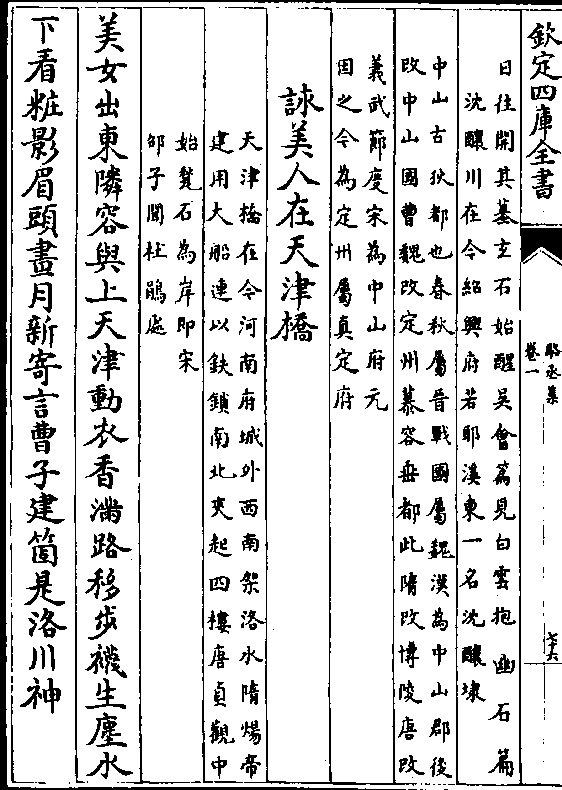 欽定四庫全書
駱丞集
卷一
七十六
日往開其墓玄石始醒吳會篇見白雲抱幽石篇
沈釀川在今紹興府若耶溪東一名沈釀埭
中山古狄都也春秋屬晉戰國屬魏漢為中山郡後
改中山國曹魏改定州慕容垂都此隋改博陵唐改
義武節度宋為中山府元
因之今為定州屬真定府
詠美人在天津橋
天津橋在今河南府城外西南架洛水隋煬帝
建用大船連以鉄鎖南北夾起四樓唐貞觀中
始甃石為岸即宋
邵子聞杜鵑處
美女出東隣容與上天津動衣香滿路移步襪生塵水
下看粧影眉頭畫月新寄言曹子建箇是洛川神